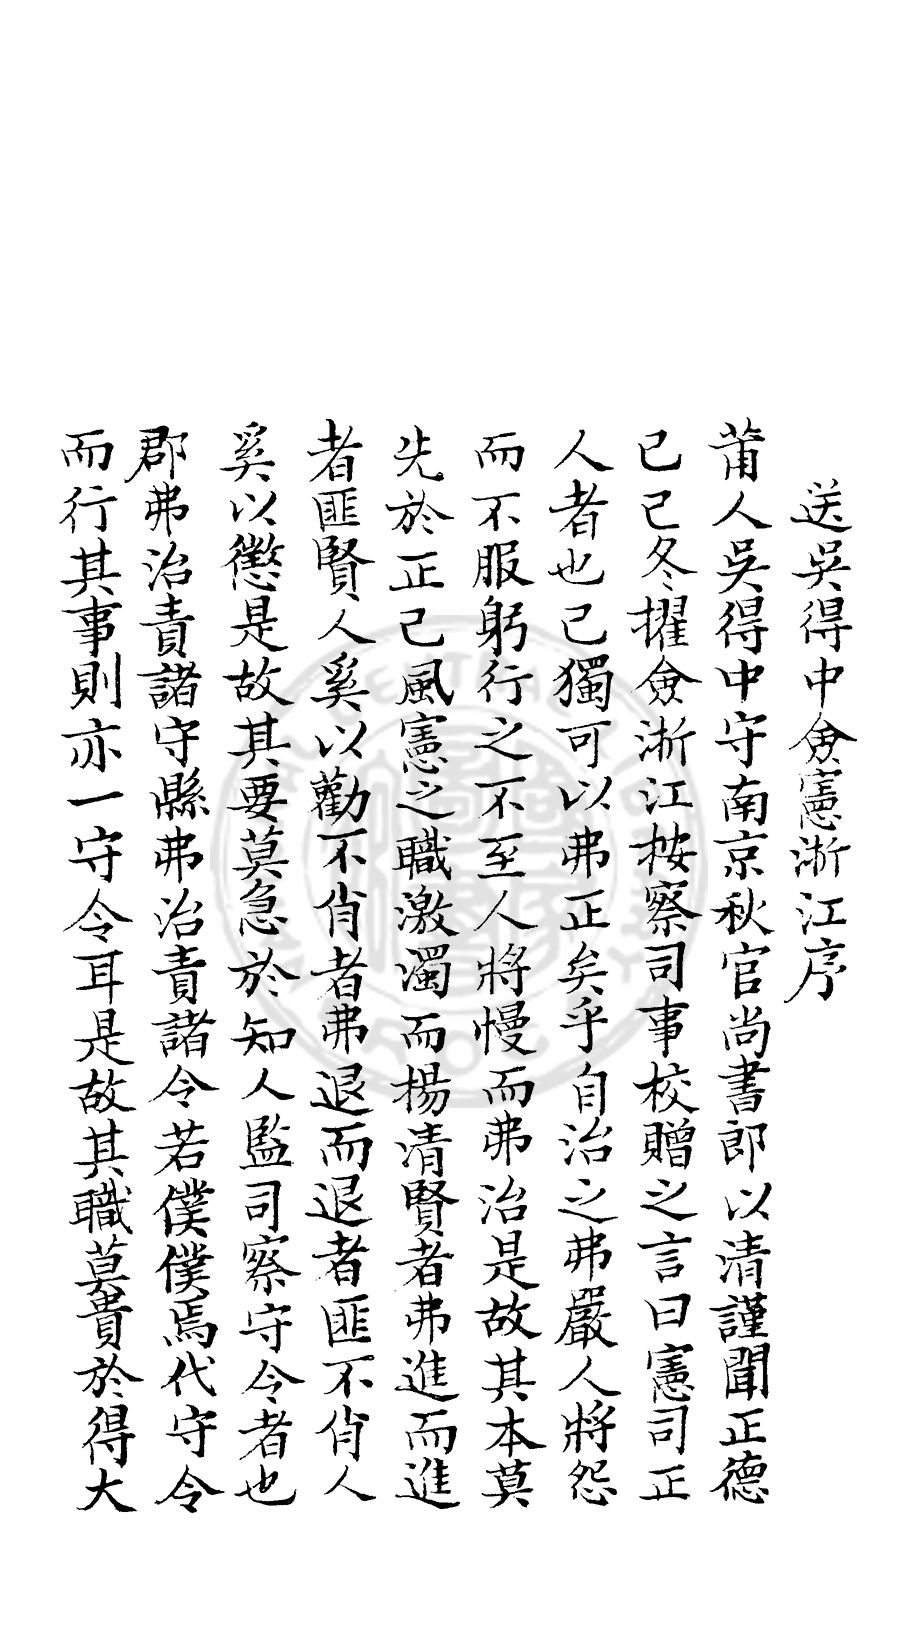 送吳得中僉憲浙江序
莆人吳得中守南京秋官尚書郎以清謹聞正德
已已冬擢僉浙江按察司事校贈之言曰憲司正
人者也已獨可以弗正矣乎自治之弗嚴人將怨
而不服躬行之不至人將慢而弗治是故其本莫
先於正己風憲之職激濁而楊清賢者弗進而進
者匪賢人奚以勸不肖者弗退而退者匪不肖人
奚以懲是故其要莫急於知人監司察守令者也
郡弗治責諸守縣弗治責諸令若僕僕焉代守令
而行其事則亦一守令耳是故其職莫貴於得大